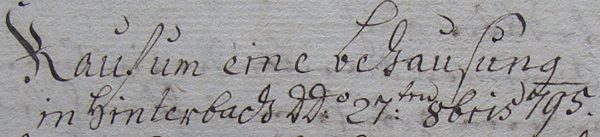 Kauf um eine behausung
in Hinterbach dd:o 27:ten 8bris 795.